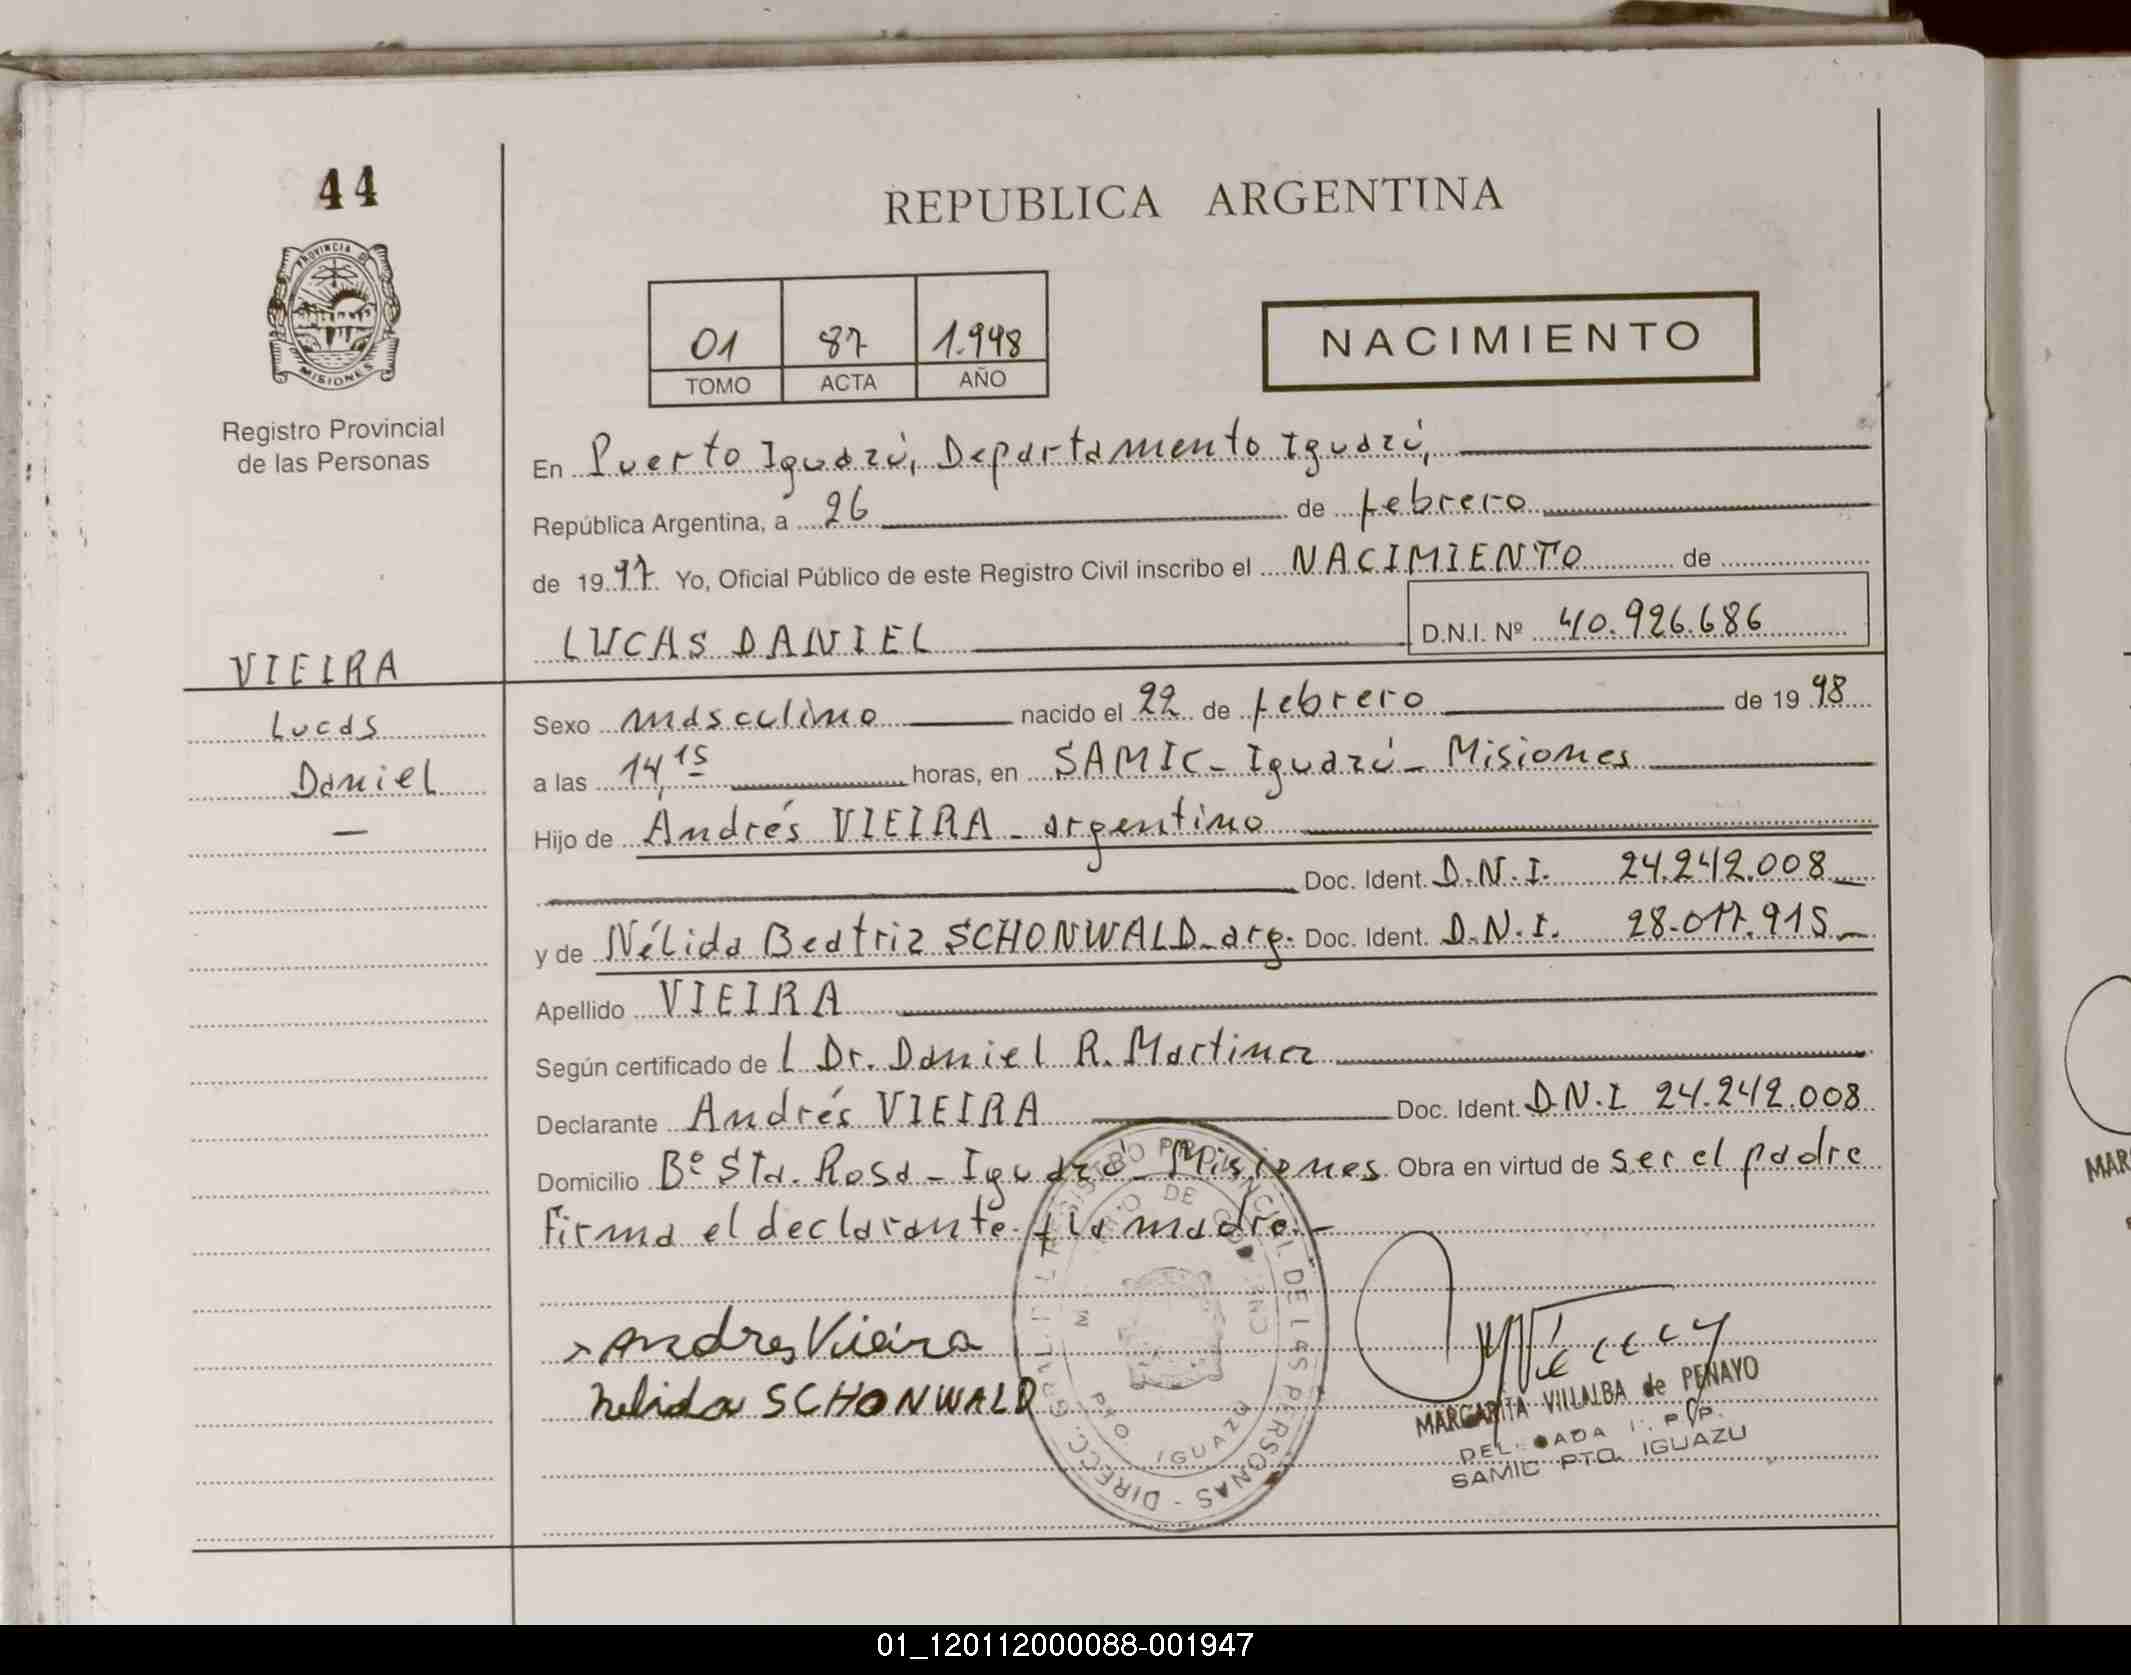 44
PROVINCIA DE
MISIONES
Registro Provincial
de las Personas
VIEIRA
Lucas
Daniel
—
REPUBLICA ARGENTINA
01 87 1.998
TOMO ACTA AÑO
NACIMIENTO
En Puerto Iguazú, Departamento Iguazú,
República Argentina, a 26 de febrero
de 1997 Yo, Oficial Público de este Registro Civil inscribo el NACIMIENTO de
LUCAS DANIEL D.N.I. Nº 40.926.686
Sexo masculino nacido el 22 de febrero de 1998
a las 14,15 horas, en SAMIC - Iguazú - Misiones
Hijo de Andrés VIEIRA - argentino
Doc. Ident. D.N.I. 24.242.008
y de Nélida Beatriz SCHONWALD - arg. Doc. Ident. D.N.I. 28.017.915
Apellido VIEIRA
Según certificado de l Dr. Daniel R. Martinez
Declarante Andrés VIEIRA Doc. Ident. D.N.I 24.242.008
Domicilio Bº Sta. Rosa - Iguazú - Misiones Obra en virtud de ser el padre
Firma el declarante y la madre.-
Andres Vieira
nelida SCHONWALD
DIRECC. GRAL. DEL REGISTRO PROVINCIAL DE LAS PERSONAS
PTO. IGUAZU
MARGARITA VILLALBA de PENAYO
SAMIC PTO. IGUAZU
MAR
01_120112000088-001947